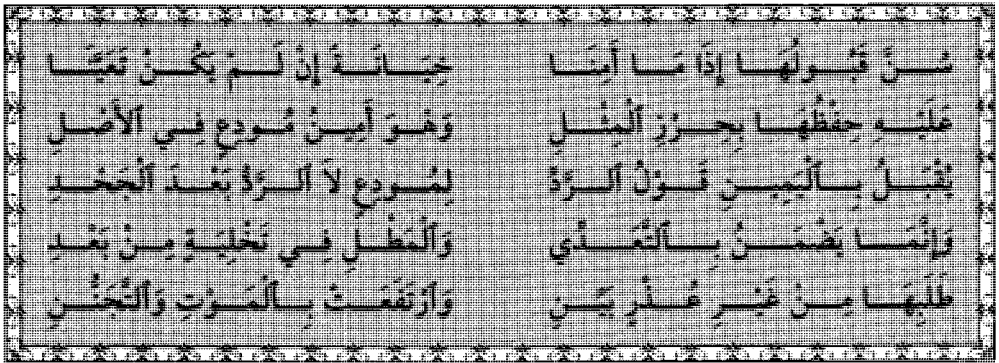 سُنَّ قَبُولُهَا إِذَا مَا أَمِنَا خِيَانَةً إِنْ لَمْ يَكُنْ تَعَيَّنَا
عَلَيْهِ حِفْظُهَا بِحِرْزِ ٱلْمِثْلِ وَهُوَ أَمِينٌ مُودِعٍ فِي ٱلْأَصْلِ
يُقْبَلُ بِٱلْيَمِينِ قَوْلُ ٱلرَّدِّ لِمُودِعٍ لاَ ٱلرَّدُّ بَعْدَ ٱلْجَحْدِ
وَإِنَّمَا يَضْمَنُ بِٱلتَّعَدِّي وَٱلْمَطْلِ فِي تَخْلِيَةٍ مِنْ بَعْدِ
طَلَبِهَا مِنْ غَيْرِ عُذْرٍ بَيِّنِ وَٱرْتَفَعَتْ بِٱلْمَوْتِ وَٱلتَّجَنُّنِ